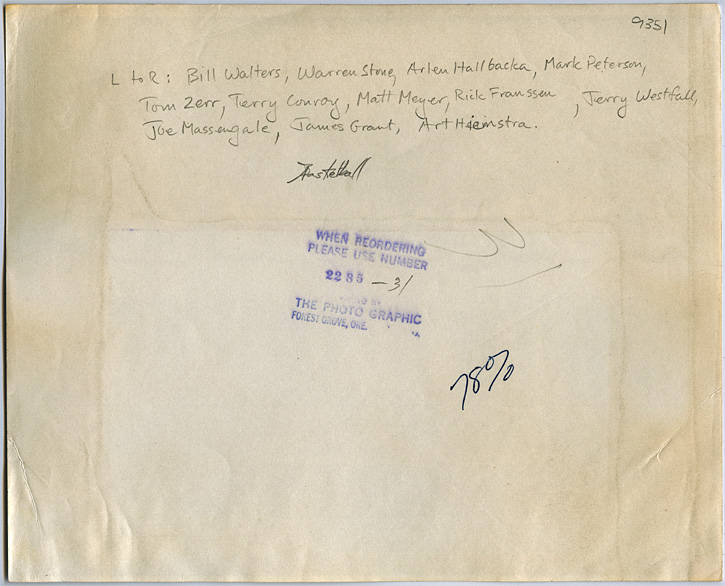 9351
L to R: Bill Walters, Warren Stone, Arlen Hallbacka, Mark Peterson,
Tom Zerr, Terry Conroy, Matt Meyer, Rick Franssen, Jerry Westfall,
Joe Massengale, James Grant, Art Hiemstra.
Basketball
WHEN REORDERING
PLEASE USE NUMBER
2285-31
THE PHOTO GRAPHIC
FOREST GROVE, ORE.
78%